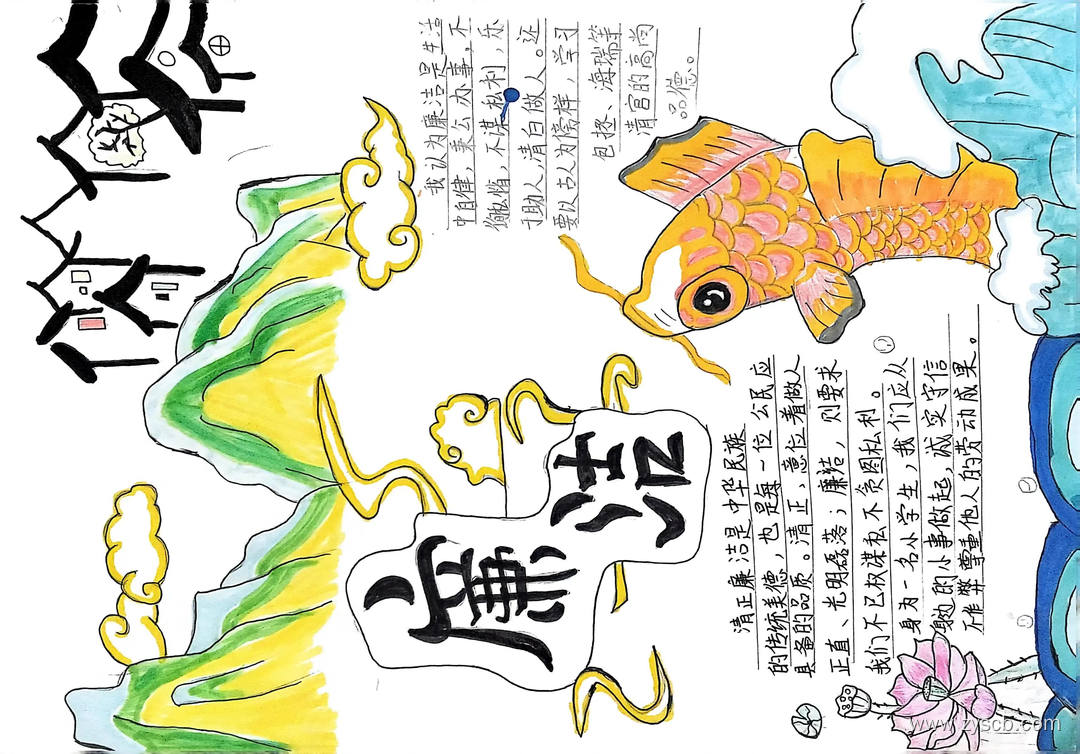 廉洁
我认为廉洁是生活
中自律，秉公办事，不
不谋私利，乐
于助人，清白做人。还
要以古人为榜样，学习
包拯、海瑞等
清官的高尚
品德。
清正廉洁是中华民族
的传统美德，也是每一位公民应
具备的品质。清正，意位着做人
正直、光明磊落；廉洁，则要求
我们不已权谋私不贪图私利。
身为一名小学生，我们应从
身边的小事做起，诚实守信
不作弊尊重他人的劳动成果。
www.zyscb.com